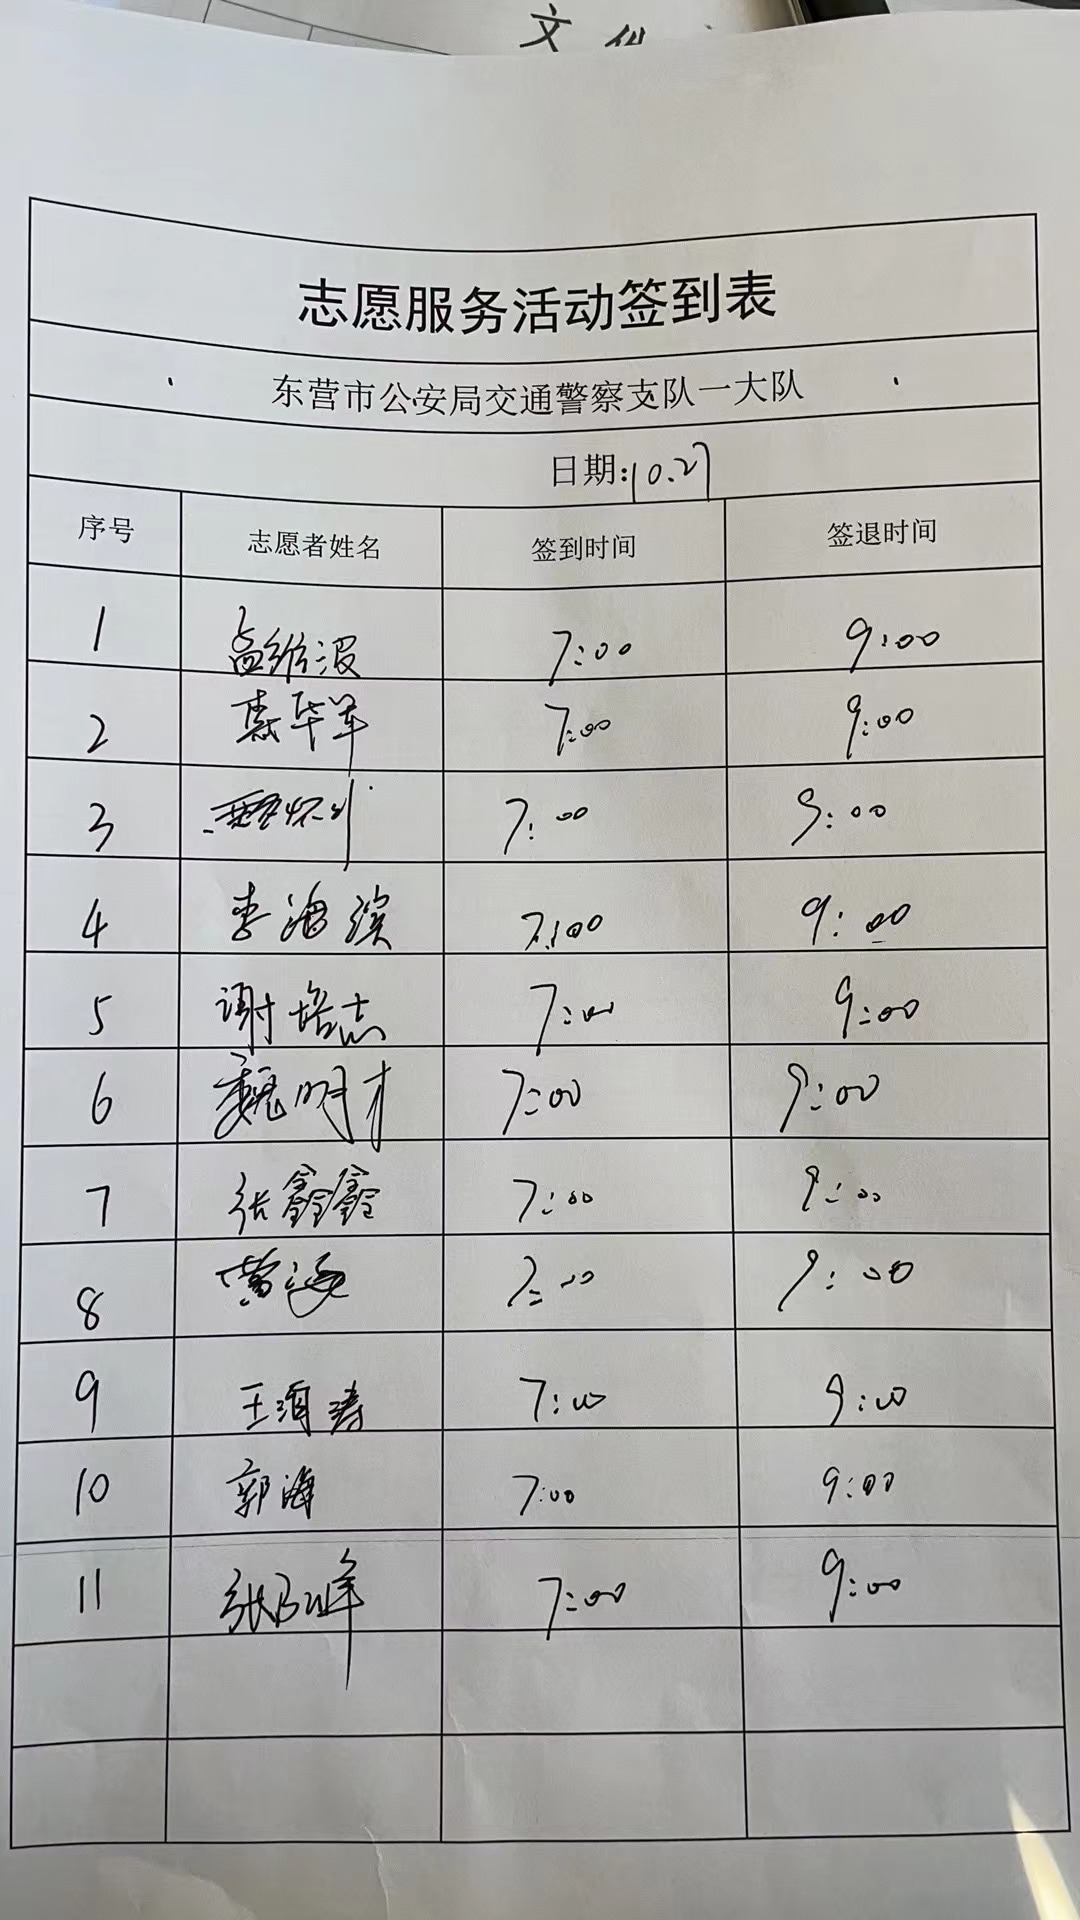 文件
志愿服务活动签到表
东营市公安局交通警察支队一大队
日期:10.27
序号 志愿者姓名 签到时间 签退时间
1 孟维波 7:00 9:00
2 华军 7:00 9:00
3 7:00 9:00
4 李海滨 7:00 9:00
5 谢培志 7:00 9:00
6 魏明才 7:00 9:00
7 张鑫鑫 7:00 9:00
8 黄海 7:00 9:00
9 王涛 7:00 9:00
10 郭海 7:00 9:00
11 张乃峰 7:00 9:00